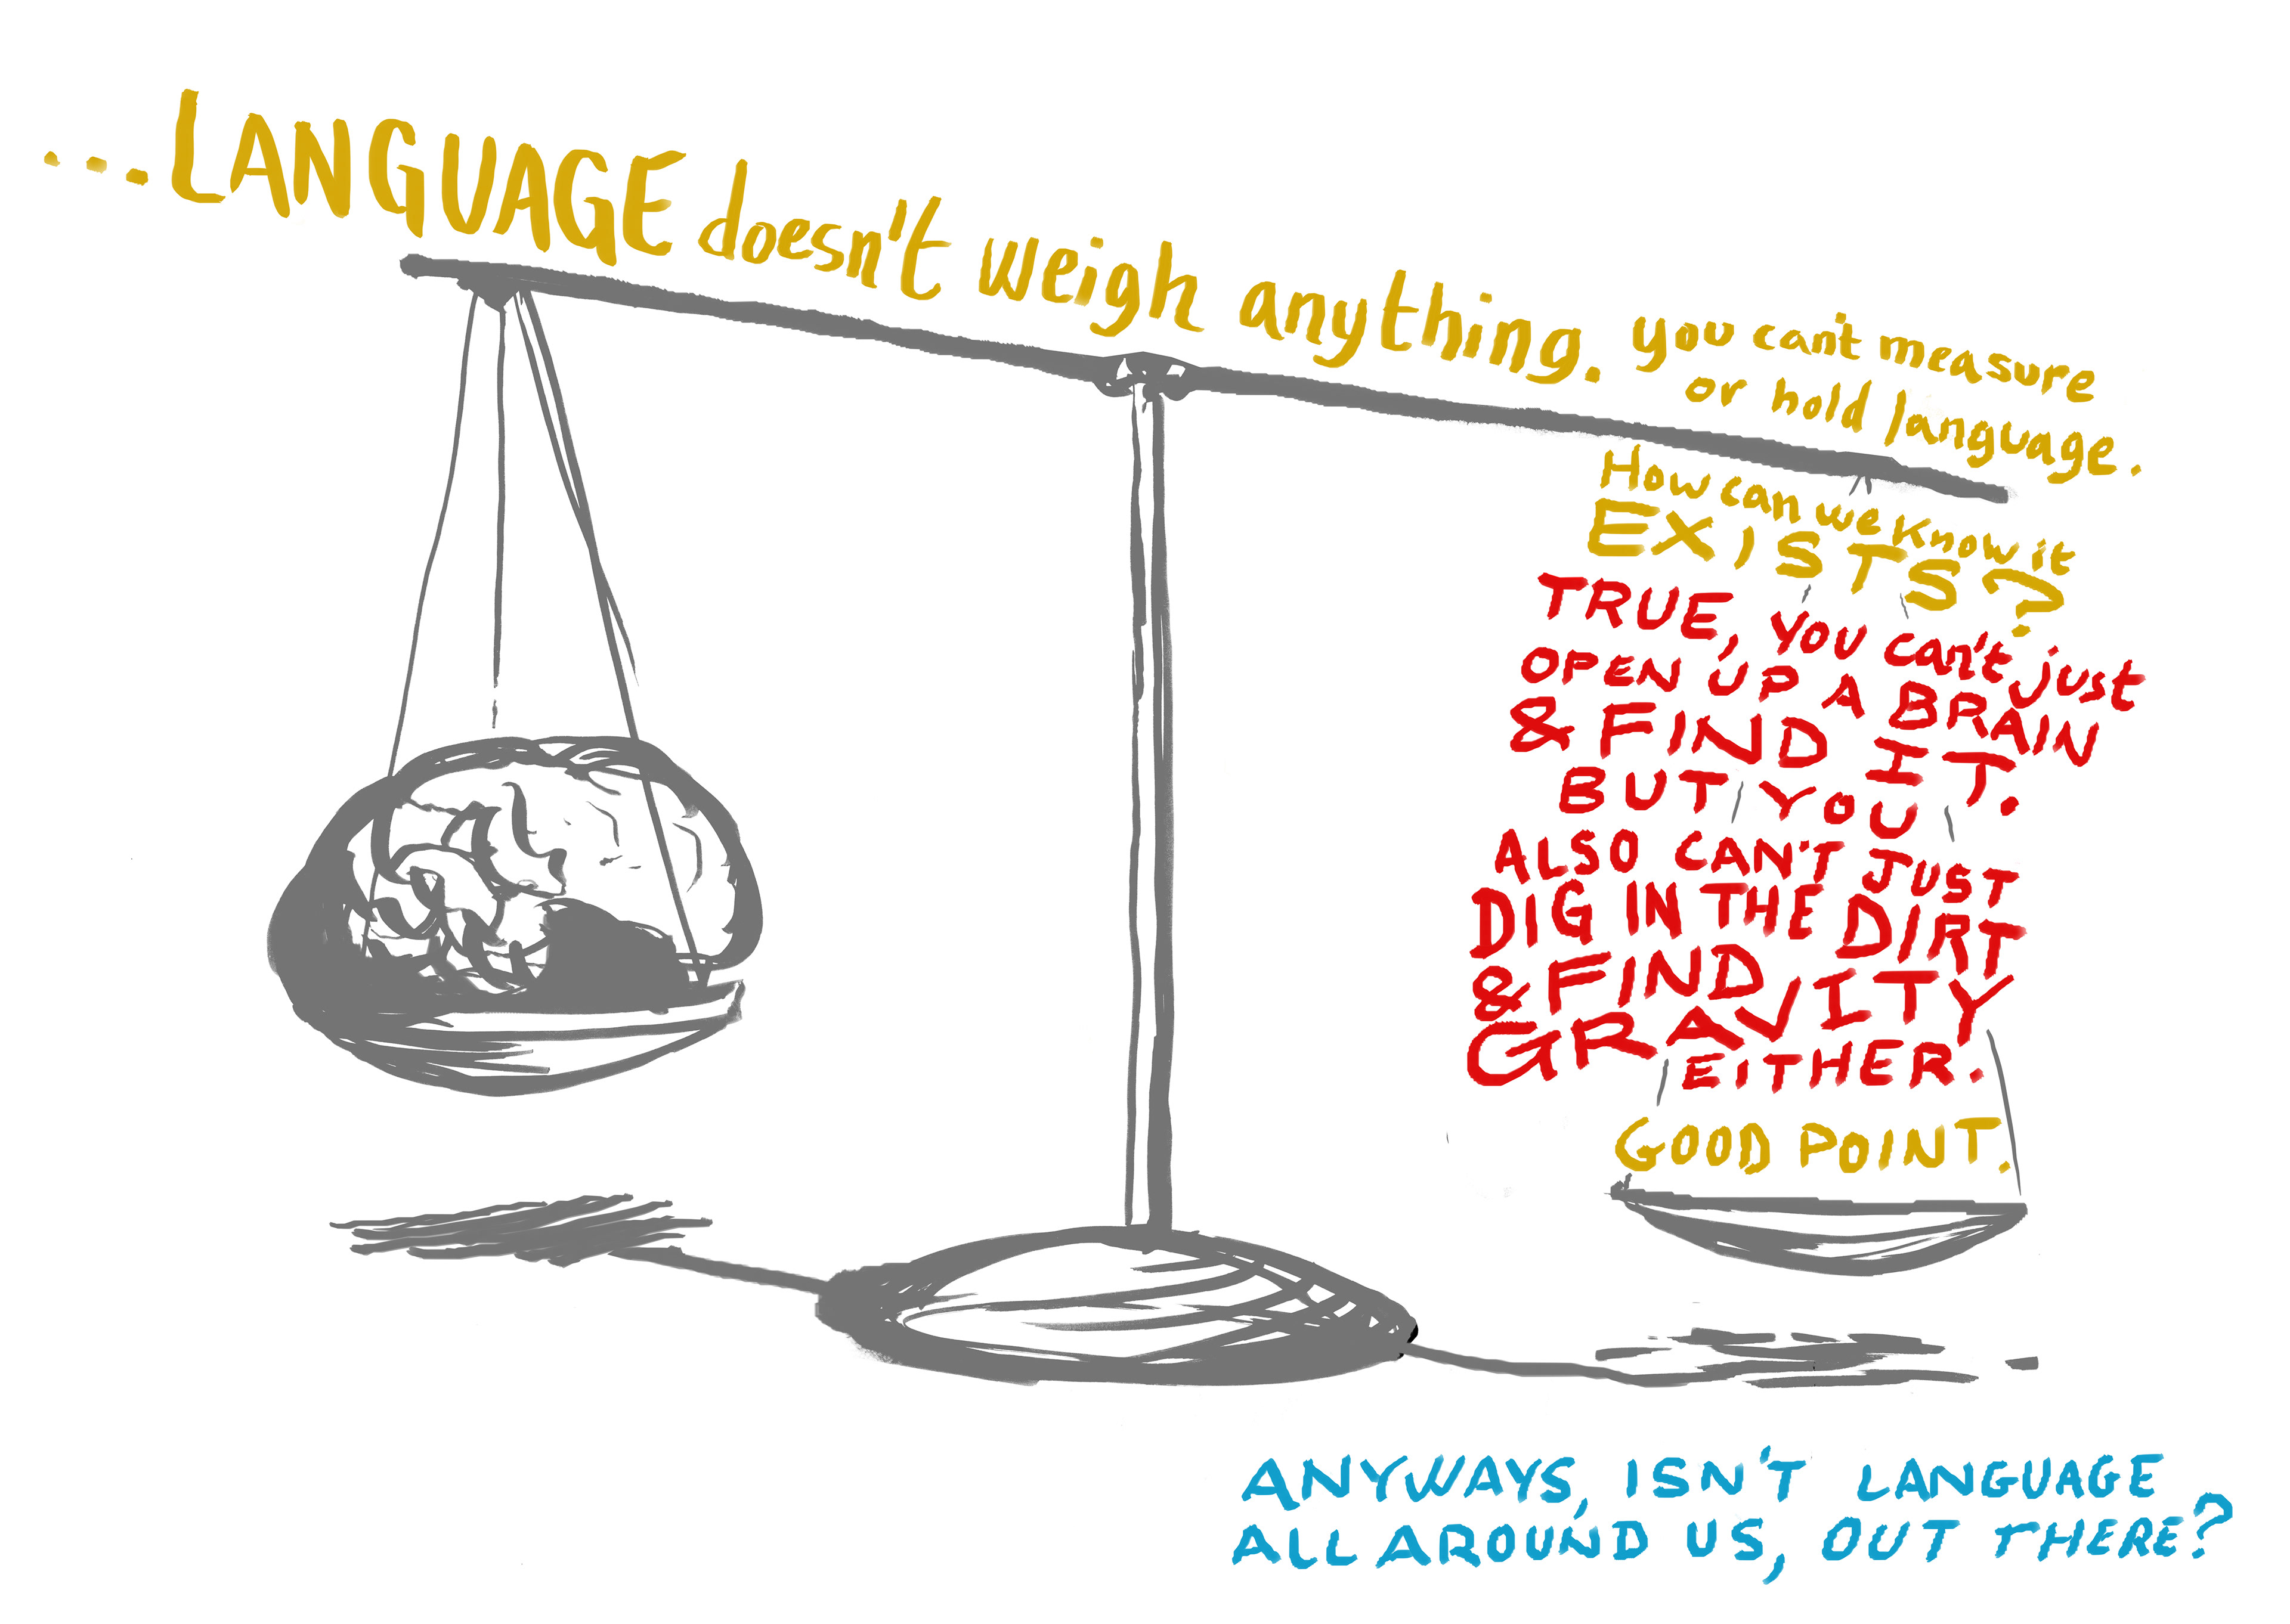 ...LANGUAGE doesn't weigh anything. you can't measure
or hold language.
How can we know it
EXISTS?
TRUE, YOU can't just
OPEN UP A BRAIN
& FIND IT.
BUT YOU
ALSO CAN'T JUST
DIG IN THE DIRT
& FIND
GRAVITY
EITHER.
GOOD POINT.
ANYWAYS, ISN'T LANGUAGE
ALL AROUND US, OUT THERE?